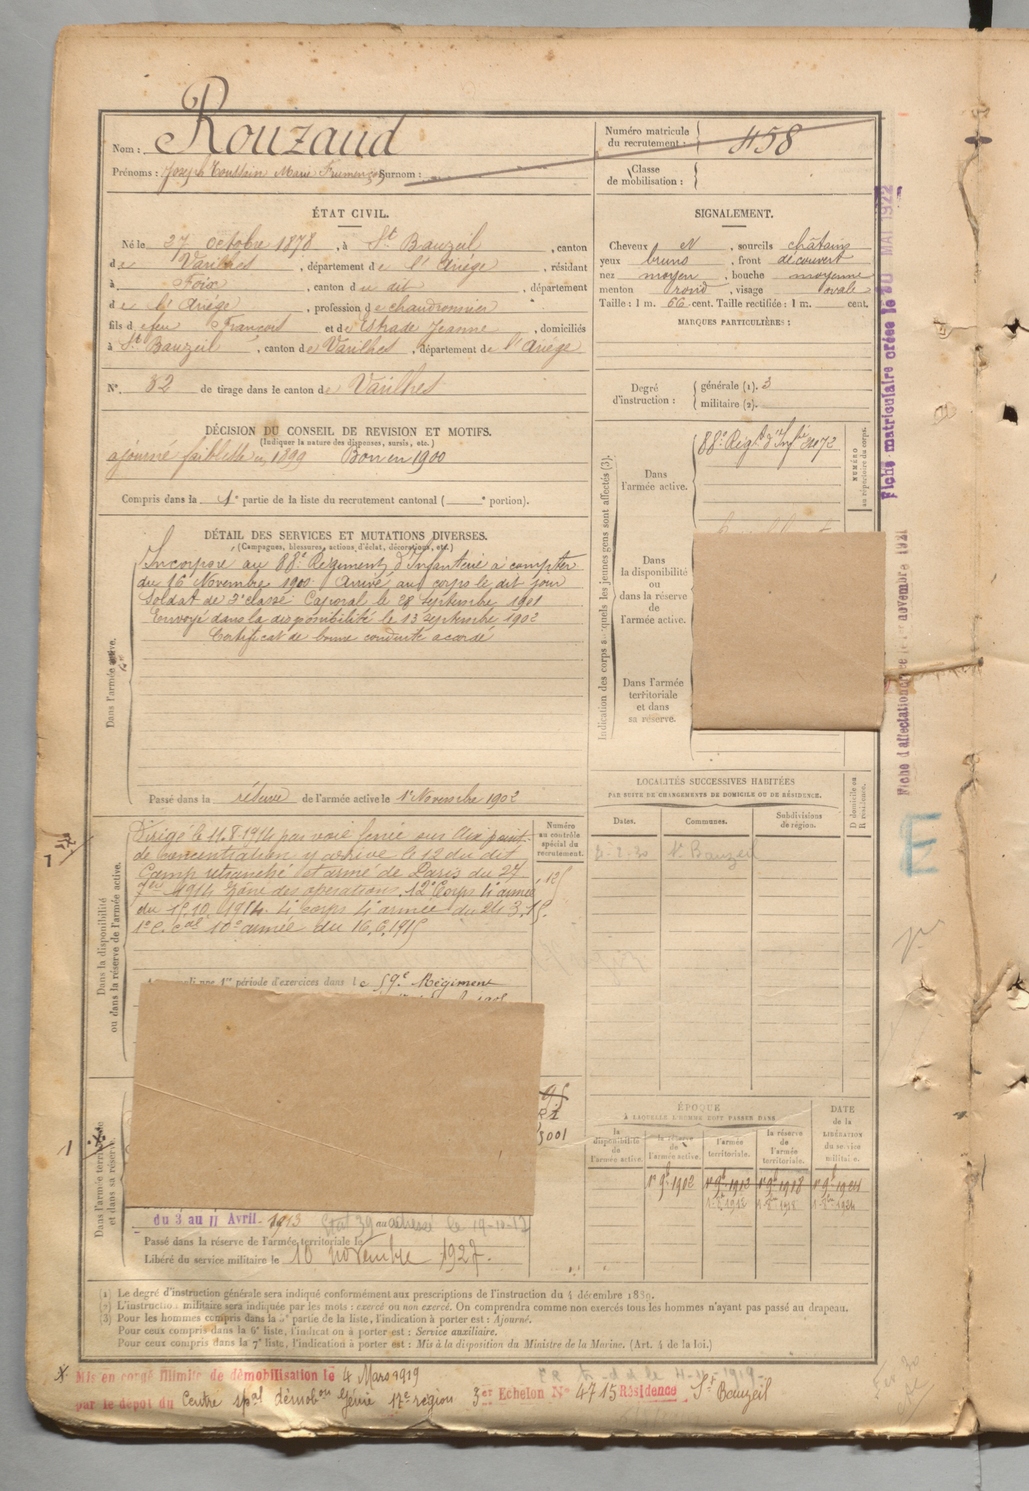 Nom : Rouzaud
Prénoms : Joseph Toussain Marie Surnom :
Numéro matricule
du recrutement : 458
Classe
de mobilisation :
ÉTAT CIVIL.
Né le 27 Octobre 1878, à St Bauzeil, canton
de Varilhes, département de l'Ariège, résidant
à Foix, canton du dit, département
de l'Ariège, profession de chaudronnier
fils de feu François et de Estrade Jeanne, domiciliés
à St Bauzeil, canton de Varilhes, département de l'Ariège
N° 82 de tirage dans le canton de Varilhes
SIGNALEMENT.
Cheveux N, sourcils châtains
yeux bruns, front découvert
nez moyen, bouche moyenne
menton rond, visage ovale
Taille : 1 m. 66 cent. Taille rectifiée : 1 m. cent.
MARQUES PARTICULIÈRES :
Degré
d'instruction :
générale (1). 3
militaire (2).
DÉCISION DU CONSEIL DE REVISION ET MOTIFS.
(Indiquer la nature des dispenses, sursis, etc.)
ajourné faiblesse en 1899 Bon en 1900
Compris dans la 1e partie de la liste du recrutement cantonal ( e portion).
DÉTAIL DES SERVICES ET MUTATIONS DIVERSES.
(Campagnes, blessures, actions d'éclat, décorations, etc.)
Dans l'armée active.
Incorporé au 88e Régiment d'Infanterie à compter
du 16 Novembre 1900. Arrivé au corps le dit jour
Soldat de 2e classe. Caporal le 28 Septembre 1901
Envoyé dans la disponibilité le 13 Septembre 1902
Certificat de bonne conduite accordé
Passé dans la réserve de l'armée active le 1er Novembre 1902
Indication des corps auxquels les jeunes gens sont affectés (3).
Dans
l'armée active.
88e Régt d'Infie 2072
NUMÉRO
au répertoire du corps.
Dans
la disponibilité
ou
dans la réserve
de
l'armée active.
Dans l'armée
territoriale
et dans
sa réserve.
Fiche matriculaire créée le 10 MAI 1922
novembre 1921
E
LOCALITÉS SUCCESSIVES HABITÉES
PAR SUITE DE CHANGEMENTS DE DOMICILE OU DE RÉSIDENCE.
Dates. Communes. Subdivisions
de région.
D domicile ou
R résidence.
St Bauzeil
Dans la disponibilité
ou dans la réserve de l'armée active.
Dirigé le 11.8.1914 par voie ferrée sur Aix point
de concentration y arrive le 12 du dit
Camp retranché et armée de Paris du 27
7bre 1914 Zone des opérations. 12e Corps 4e armée
du 15.10.1914. 4e Corps 4e armée du 24.3.15.
10e armée du 16.6.1915
Numéro
au contrôle
spécial du
recrutement.
1re période d'exercices dans le 59e Régiment
Dans l'armée territoriale
et dans sa réserve.
du 3 au 11 Avril 1913
Passé dans la réserve de l'armée territoriale le
Libéré du service militaire le 10 novembre 1927.
ÉPOQUE
À LAQUELLE L'HOMME DOIT PASSER DANS
la
disponibilité
de
l'armée active.
la réserve
de
l'armée active.
l'armée
territoriale.
la réserve
de
l'armée
territoriale.
DATE
de la
LIBÉRATION
du service
militaire.
1er 9bre 1902 1er 9bre 1912 1er 9bre 1918 1er 9bre 1924
(1) Le degré d'instruction générale sera indiqué conformément aux prescriptions de l'instruction du 4 décembre 1889.
(2) L'instruction militaire sera indiquée par les mots : exercé ou non exercé. On comprendra comme non exercés tous les hommes n'ayant pas passé au drapeau.
(3) Pour les hommes compris dans la 5e partie de la liste, l'indication à porter est : Ajourné.
Pour ceux compris dans la 6e liste, l'indication à porter est : Service auxiliaire.
Pour ceux compris dans la 7e liste, l'indication à porter est : Mis à la disposition du Ministre de la Marine. (Art. 4 de la loi.)
Mis en congé illimité de démobilisation le 4 Mars 1919
par le dépôt du Centre spal démobon génie 17e région 3er Echelon N° 4715 Résidence St Bauzeil